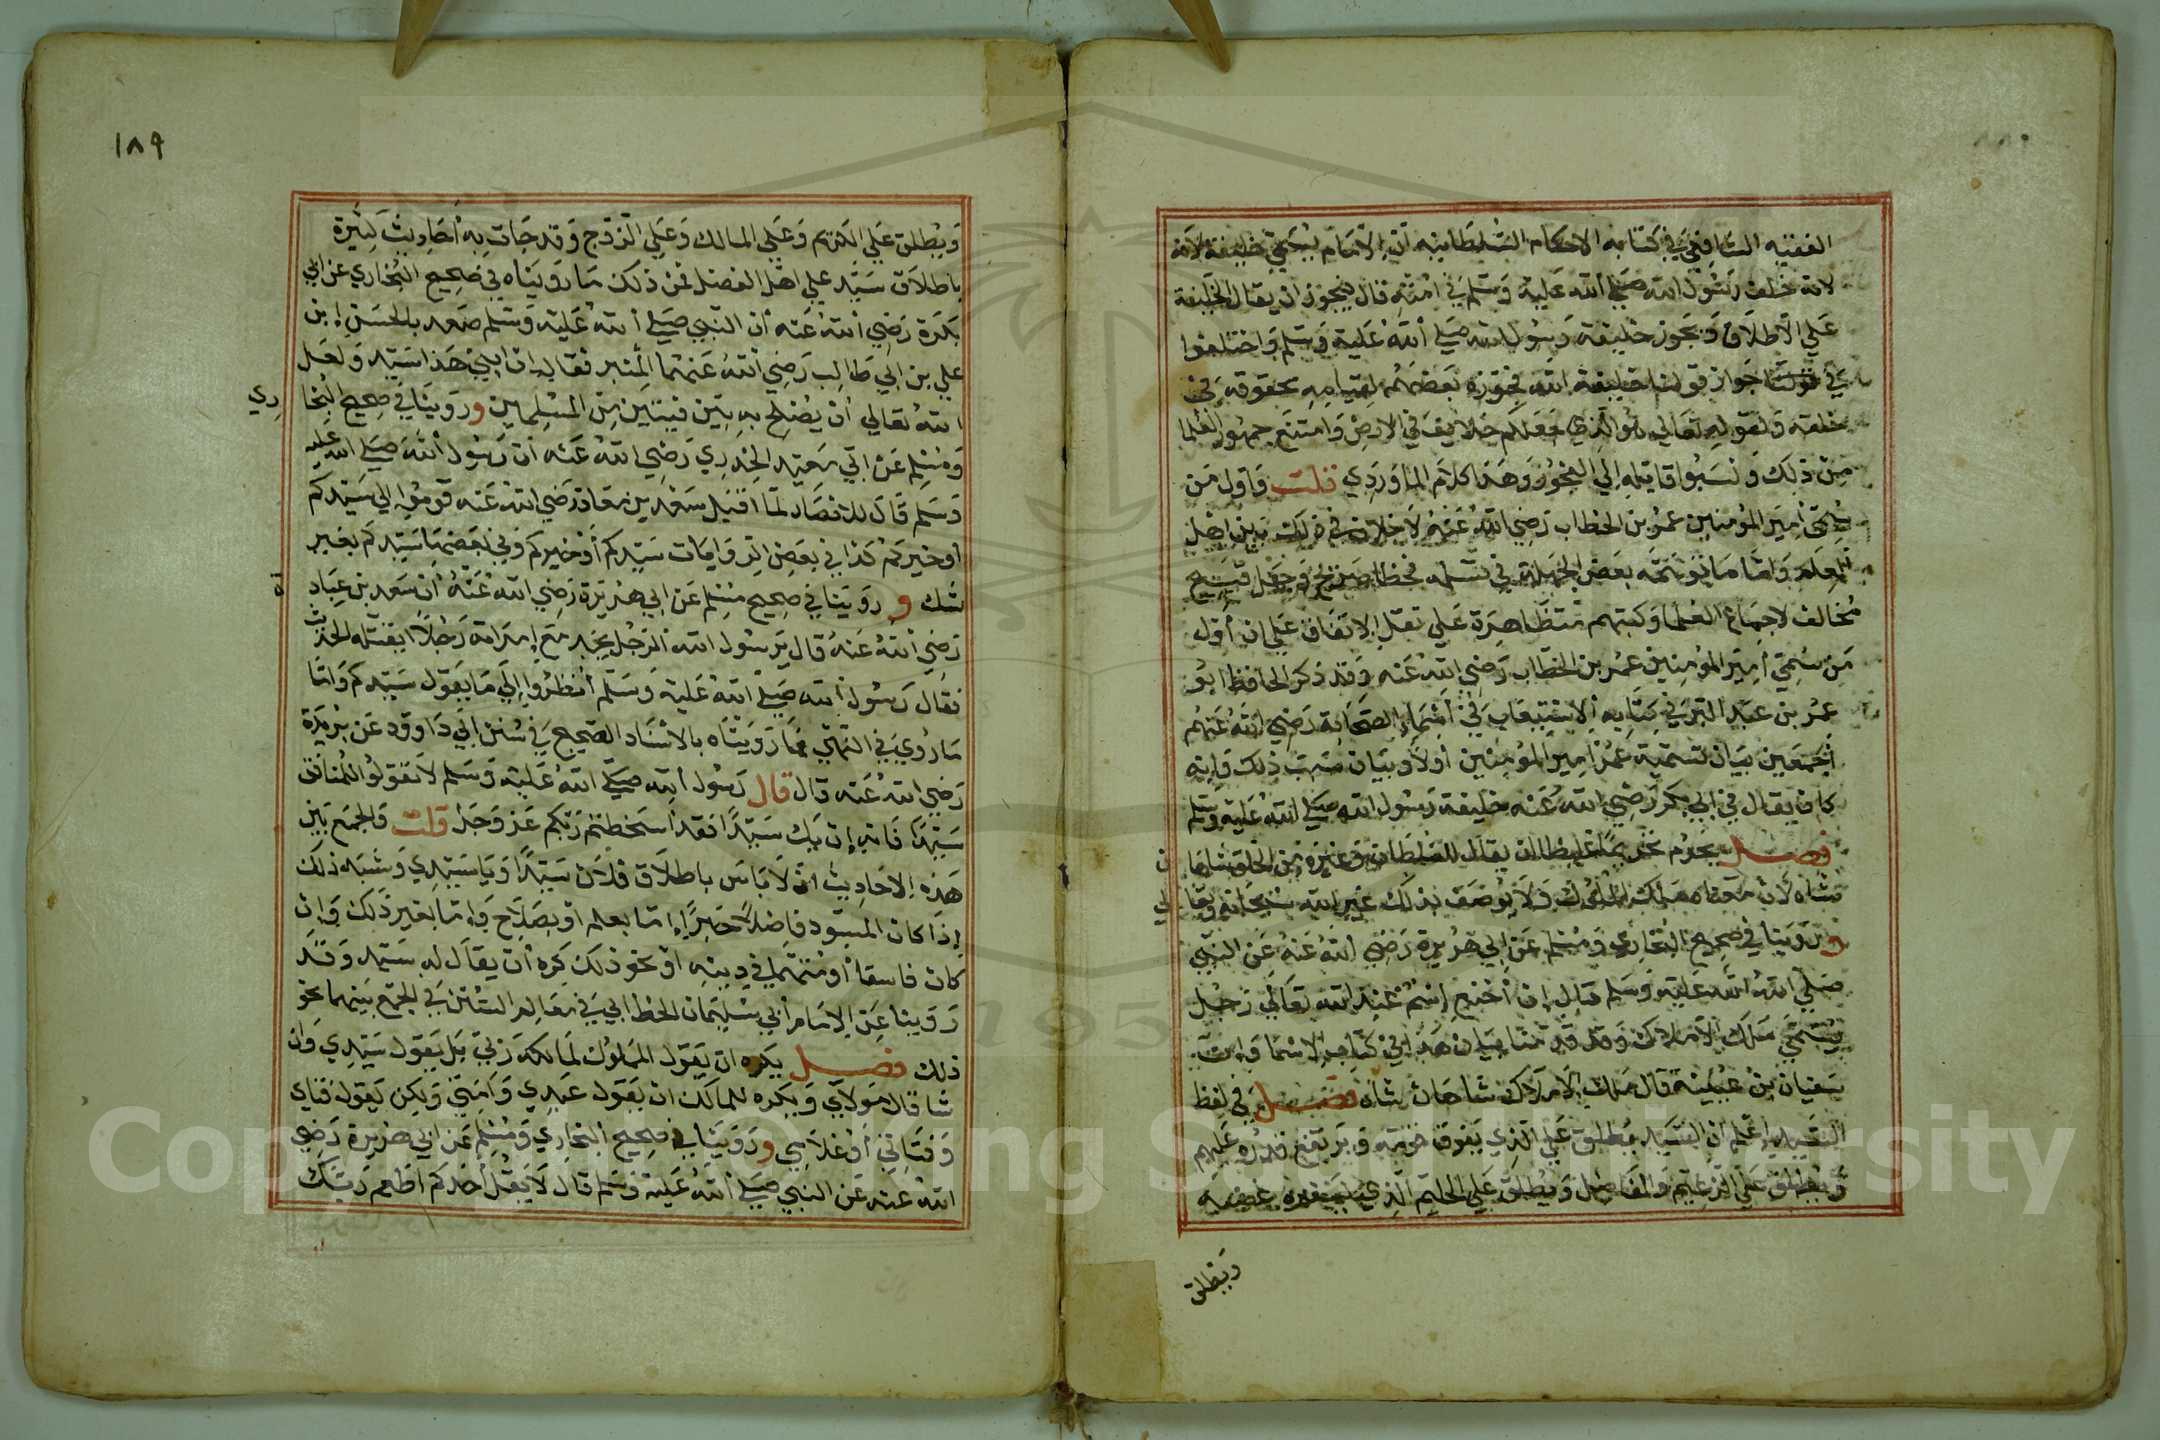 الفقيه الشافعي في كتابه الاحكام السلطانيه ان الامام يسمي خليفة لانه
لانه خلف رسول الله صلى الله عليه وسلم في امته قال فيجوز ان يقال الخليفة
علي الاطلاق ويجوز خليفة رسول الله صلى الله عليه وسلم واختلفوا
في جواز قولنا خليفة الله فجوزه بعضهم لقيامه بحقوقه في
خلقه ولقوله تعالي هو الذي جعلكم خلايف في الارض وامتنع جمهور العلما
من ذلك ونسبوا قايله الي الفجور وهذا كلام الماوردي قلت واول من
سمي امير المومنين عمر بن الخطاب رضي الله عنه لا خلاف في ذلك بين اهل
العلم واما ما توهمه بعض الجهلة في مسيلمه فخطا صريح وجهل قبيح
مخالف لاجماع العلما وكتبهم متظاهرة علي نقل الاتفاق علي ان اول
من سمي امير المؤمنين عمر بن الخطاب رضي الله عنه وقد ذكر الحافظ ابو
عمر بن عبد البر في كتابه الاستيعاب في اسماء الصحابة رضي الله عنهم
اجمعين بيان تسمية عمر امير المؤمنين اولا وبيان سبب ذلك وانه
كان يقال في ابي بكر رضي الله عنه خليفة رسول الله صلي الله عليه وسلم
فصل يحرم تحريما غليظا ان يقال للسلطان وغيره من الخلق شاهان
شاه لان معناه ملك الملوك ولا يوصف بذلك غير الله سبحانه وتعالي
و روينا في صحيح البخاري ومسلم عن ابي هريرة رضي الله عنه عن النبي
صلي الله عليه وسلم قال ان اخنع اسم عند الله تعالي رجل
يسمي ملك الاملاك وقد قدمنا بيان هذا في كتاب الاسما وان
سفيان بن عيينة قال ملك الاملاك شاهان شاه فصل في لفظ
السيد اعلم ان السيد يطلق علي الذي يفوق قومه ويرتفع قدره عليهم
ويطلق علي الزعيم والفاضل ويطلق علي الحليم الذي لا يستفزه غضبه
ويطلق
١٨٩
ويطلق علي الكريم وعلي المالك وعلي الزوج وقد جات به احاديث كثيرة
باطلاق سيد علي اهل الفضل فمن ذلك ما رويناه في صحيح البخاري عن ابي
بكرة رضي الله عنه ان النبي صلي الله عليه وسلم صعد بالحسن ابن
علي بن ابي طالب رضي الله عنهما المنبر فقال ان ابني هذا سيد ولعل
الله تعالي ان يصلح به بين فيتين من المسلمين و روينا في صحيح البخاري
ومسلم عن ابي سعيد الخدري رضي الله عنه ان رسول الله صلي الله عليه
وسلم قال للانصار لما اقبل سعد بن معاذ رضي الله عنه قوموا الي سيدكم
او خيركم كذا في بعض الروايات سيدكم او خيركم وفي بعضها سيدكم بغير
شك و روينا في صحيح مسلم عن ابي هريرة رضي الله عنه ان سعد بن عبادة
رضي الله عنه قال يرسول الله الرجل يجد مع امراته رجلا ايقتله الحديث
فقال رسول الله صلي الله عليه وسلم انظروا الي ما يقول سيدكم واما
ما روي في النهي فما رويناه بالاسناد الصحيح في سنن ابي داوود عن بريدة
رضي الله عنه قال قال رسول الله صلي الله عليه وسلم لا تقولوا للمنافق
سيد فانه ان يك سيدا فقد اسخطتم ربكم عز وجل قلت والجمع بين
هذه الاحاديث انه لا باس باطلاق فلان سيد ويا سيدي وشبه ذلك
اذا كان المسود فاضلا خيرا اما بعلم او بصلاح واما بغير ذلك وان
كان فاسقا او متهما في دينه او نحو ذلك كره ان يقال له سيد وقد
روينا عن الامام ابي سليمان الخطابي في معالم السنن في الجمع بينهما نحو
ذلك فصل يكره ان يقول المملوك لمالكه ربي بل يقول سيدي وان
شا قال مولاي ويكره للمالك ان يقول عبدي وامتي ولكن يقول فتاي
وفتاتي او غلامي و روينا في صحيح البخاري ومسلم عن ابي هريرة رضي
الله عنه عن النبي صلي الله عليه وسلم قال لا يقل احدكم اطعم ربك
Copyright © King Saud University
1957